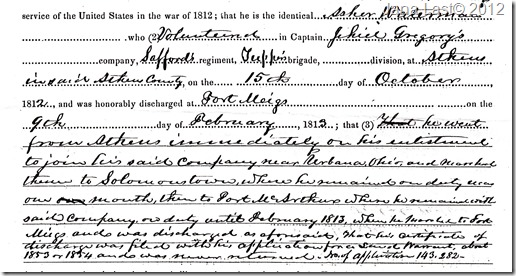 Jana Last© 2012
service of the United States in the war of 1812; that he is the identical Asher Waterman
who (2) Volunteered in Captain Jehiel Gregory's
company, Safford's regiment, Tupper's brigade, division, at Athens
in said Athens County, on the 15th day of October
1812, and was honorably discharged at Fort Meigs on the
9th day of February, 1813; that (3) That he went
from Athens immediately on his enlistment
to join his said Company near Urbana, Ohio, and marched
them to Solomonstown, where he remained on duty
one month, then to Fort McArthur where he remained with
said Company on duty until February 1813, when he marched to Fort
Meigs and was discharged as aforesaid, That his certificate of
discharge was filed with his application for a Land Warrant, about
1853 or 1854 and was never returned. No of application 143.282-